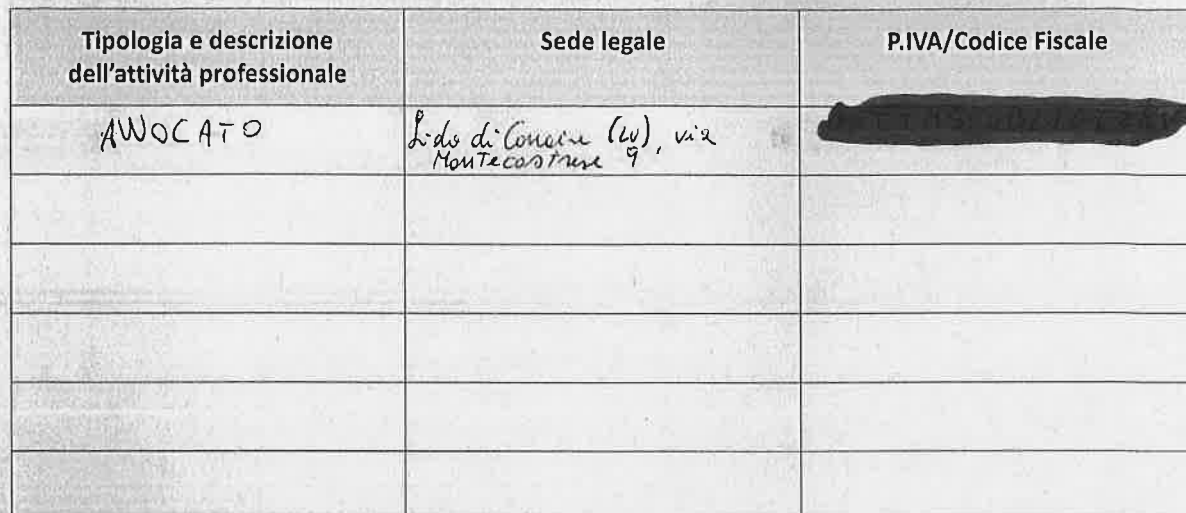 Tipologia e descrizione
dell'attività professionale
Sede legale
P.IVA/Codice Fiscale
AVVOCATO
Lido di (LU), via
Montecastrese 9